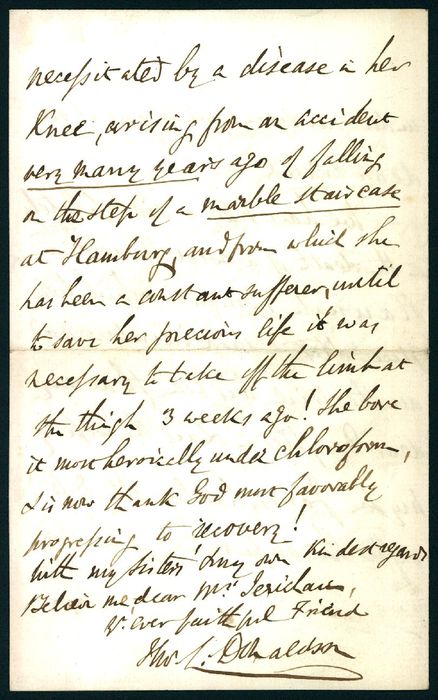 necessitated by a disease in her
Knee, arising from an accident
very many years ago of falling
on the step of a marble staircase
at Hamburg, and from which she
has been a constant sufferer, until
to save her precious life it was
necessary to take off the limb at
the thigh 3 weeks ago! She bore
it most heroically under chloroform,
& is now thank God most favorably
progressing to recovery!
With my Sisters' & my own Kindest regards
Believe me dear Mrs Jerichau,
Yr. ever faithful Friend
Thos. L. Donaldson